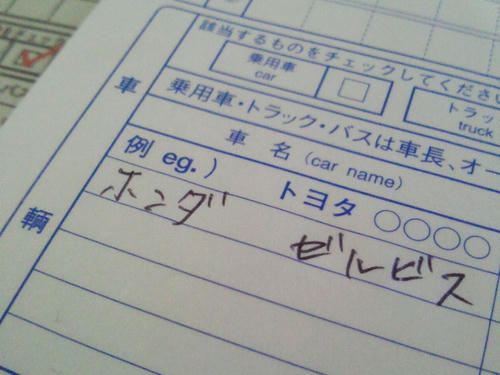 該当するものをチェックしてください
乗用車
car
トラッ
truck
乗用車・トラック・バスは車長、オー
車名 (car name)
例 eg.) トヨタ ○○○○
ホンダ ゼルビス
車
輌